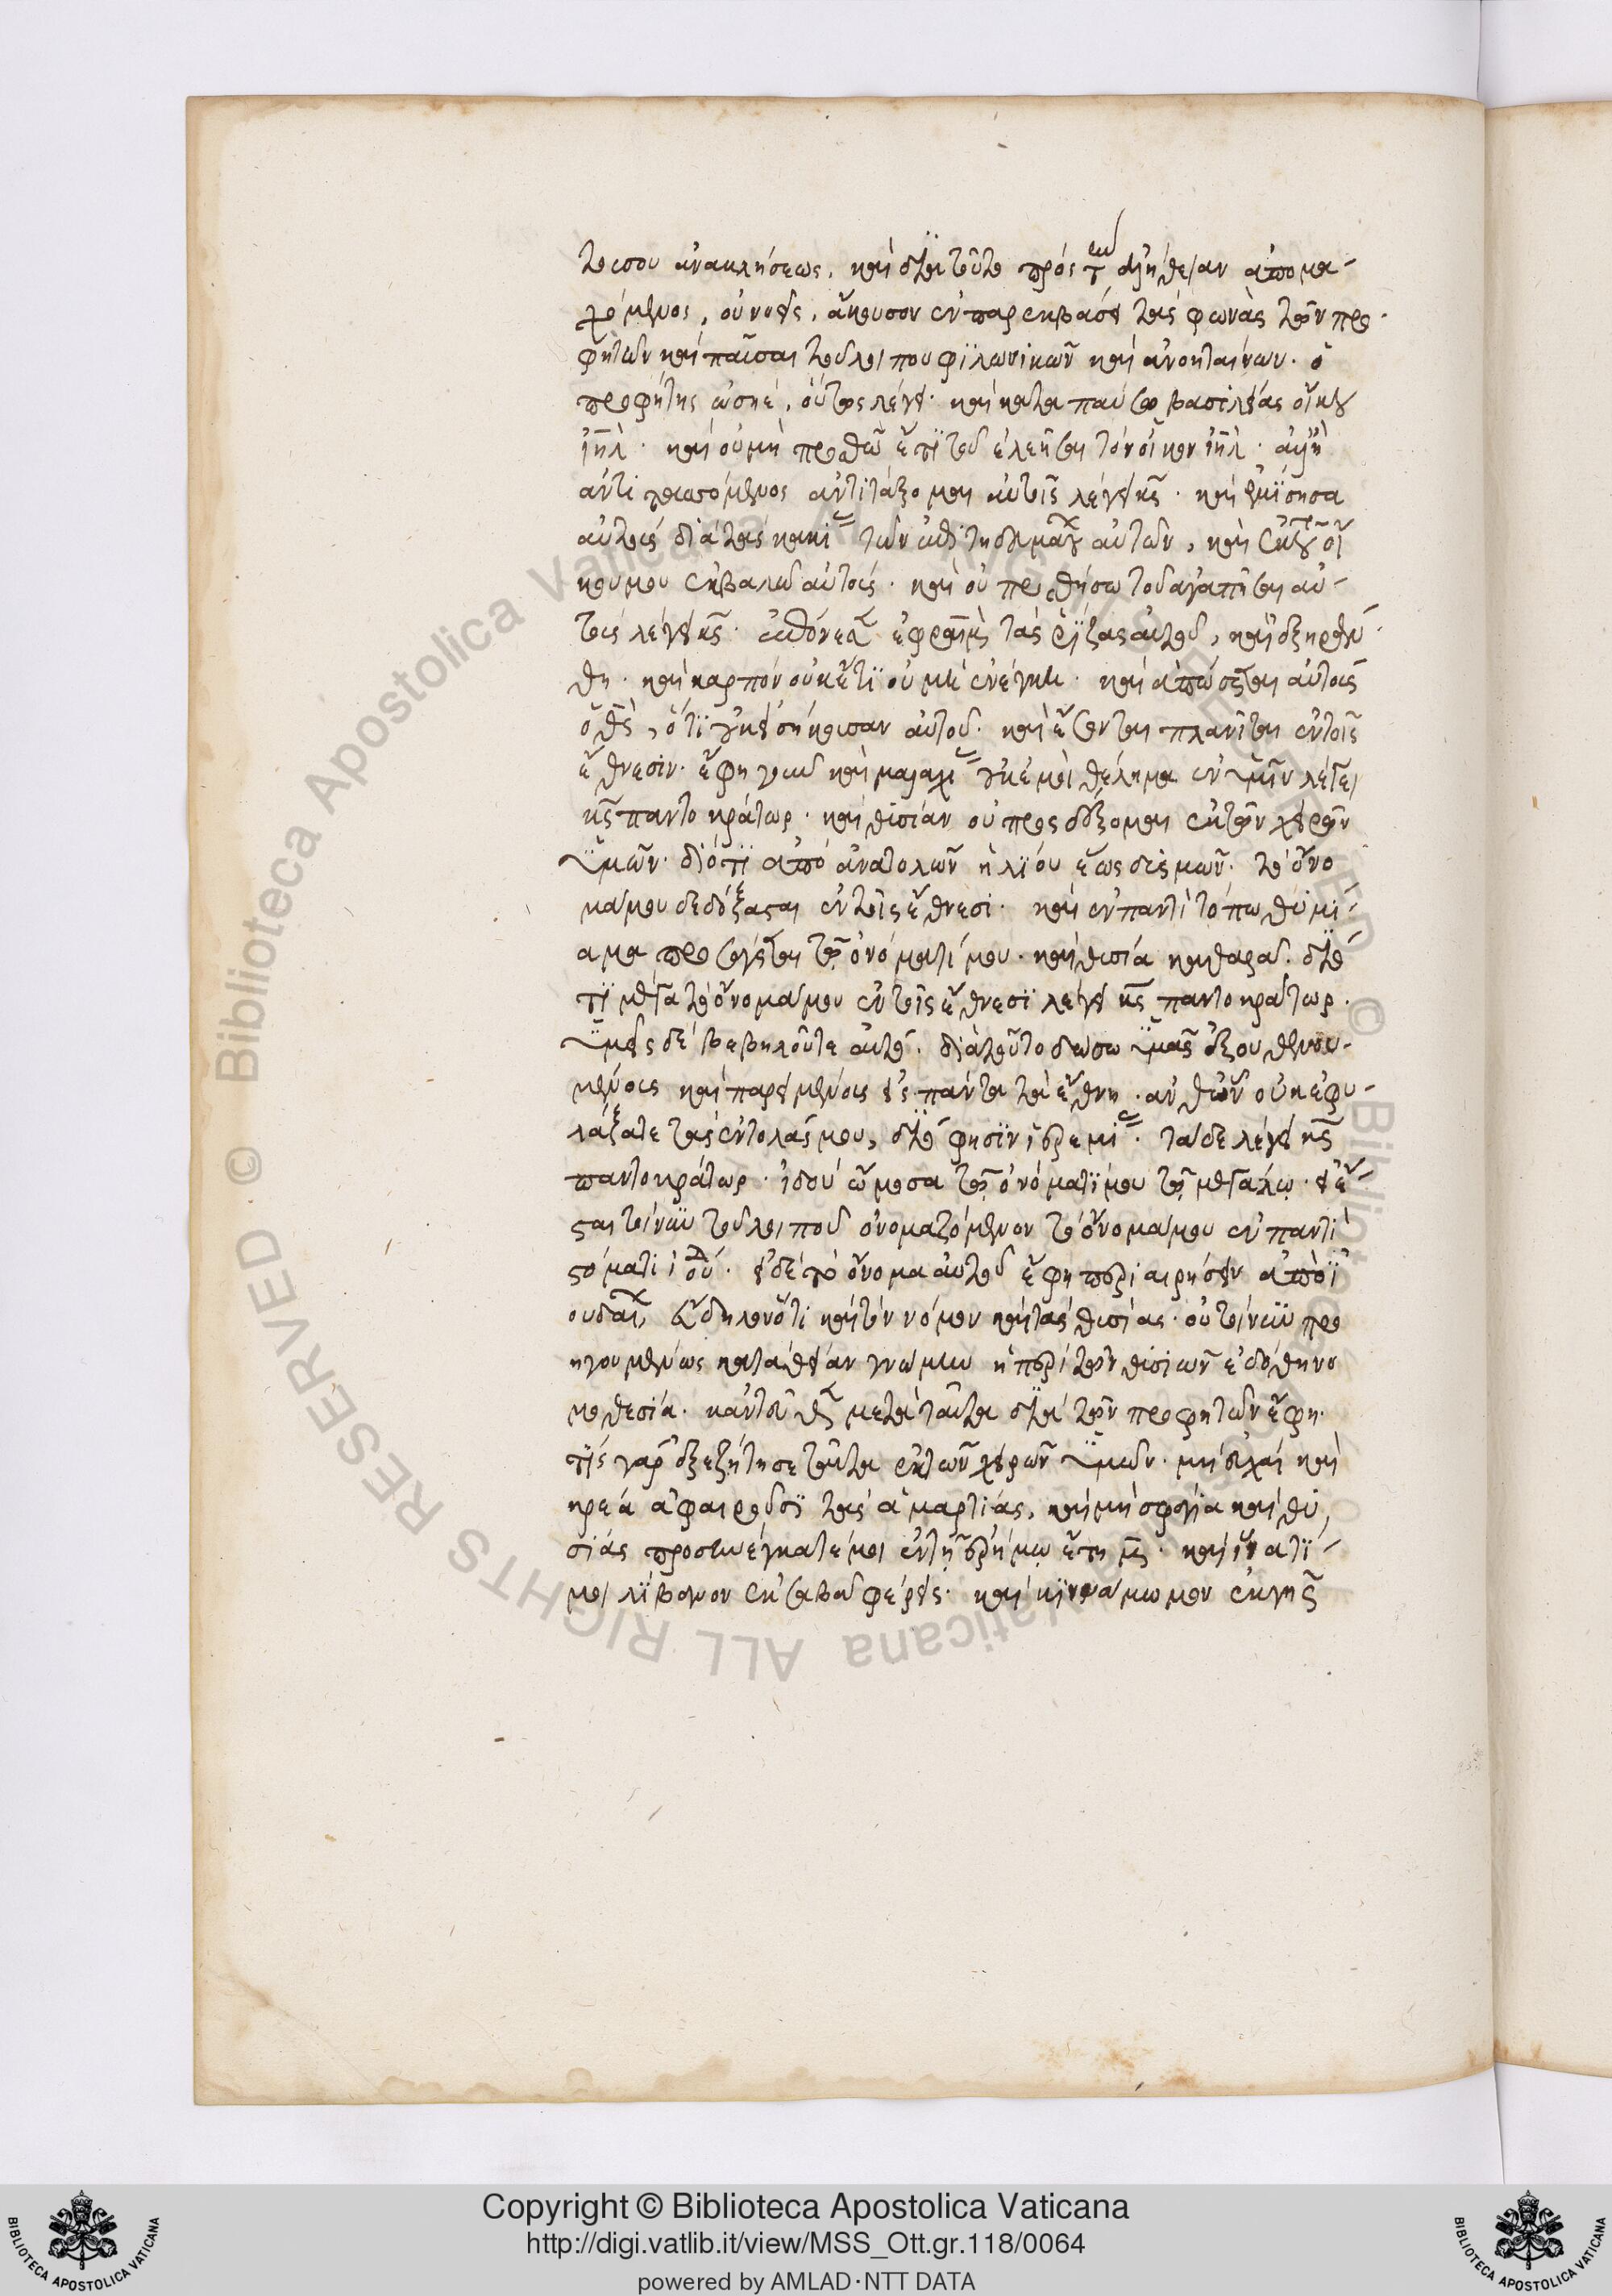 τοισου ἀνακλήσεως. καὶ διὰ τοῦτο πρὸς τὴν ἀλήθειαν ἀπομα-
χόμενος, οὐ νοεῖς. ἄκουσον ἐν παρεκβάσει τὰς φωνὰς τῶν προ-
φητῶν καὶ παῦσαι τοῦ λοιποῦ φιλονικῶν καὶ ἀνοηταίνων. ὁ
προφήτης ὡσηὲ, οὕτως λέγει. καὶ καταπαύσω βασιλείας οἴκου
ἰηλ. καὶ οὐ μὴ προσθῶ ἔτι τοῦ ἐλεῆσαι τὸν οἶκον ἰηλ. ἀλλ' ἢ
ἀντιτασσόμενος ἀντιτάξομαι αὐτοῖς λέγει κς. καὶ ἐμίσησα
αὐτοὺς διὰ τὰς κακίας τῶν ἐπιτηδευμάτων αὐτῶν, καὶ ἐκ τοῦ οἴ
κου μου ἐκβαλῶ αὐτούς. καὶ οὐ προσθήσω τοῦ ἀγαπῆσαι αὐ-
τοὺς λέγει κς. ἐπόνεσεν ἐφραὶμ τὰς ῥίζας αὐτοῦ, καὶ ἐξηράν-
θη. καὶ καρπὸν οὐκέτι οὐ μὴ ἐνέγκη. καὶ ἀπώσεται αὐτοὺς
ὁ θς, ὅτι οὐκ εἰσήκουσαν αὐτοῦ. καὶ ἔσονται πλανῆται ἐν τοῖς
ἔθνεσιν. ἔφη γοῦν καὶ μαλαχίας οὐκ ἔ μοι θέλημα ἐν ὑμῖν λέγει
κς παντοκράτωρ. καὶ θυσίαν οὐ προσδέξομαι ἐκ τῶν χειρῶν
ὑμῶν. διότι ἀπὸ ἀνατολῶν ἡλίου ἕως δυσμῶν. τὸ ὄνο
μά μου δεδόξασται ἐν τοῖς ἔθνεσι. καὶ ἐν παντὶ τόπω θυμί-
αμα προσάγεται τῷ ὀνόματί μου. καὶ θυσία καθαρά. διό
τι μέγα τὸ ὄνομά μου ἐν τοῖς ἔθνεσι λέγει κς παντοκράτωρ.
ὑμεῖς δὲ βεβηλοῦτε αὐτό. διὰ τοῦτο δώσω ὑμᾶς ἐξουθενου-
μένους καὶ παρειμένους εἰς πάντα τὰ ἔθνη. ἀνθ' ὧν οὐκ ἐφυ-
λάξατε τὰς ἐντολάς μου, διό φησιν ἱερεμίας. τάδε λέγει κς
παντοκράτωρ. ἰδοὺ ὤμοσα τῷ ὀνόματί μου τῷ μεγάλῳ. εἰ ἔ-
σται τοίνυν τοῦ λοιποῦ ὀνομαζόμενον τὸ ὄνομά μου ἐν παντὶ
στόματι ἰούδα. εἰ δὲ τὸ ὄνομα αὐτοῦ ἔφη περιαιρήσειν ἀπὸ ἰ
ουδαίων, εὔδηλον ὅτι καὶ τὸν νόμον καὶ τὰς θυσίας. οὐ τοίνυν προ
ηγουμένως κατὰ θείαν γνώμην ἡ περὶ τῶν θυσιῶν ἐδόθη νο
μοθεσία. κἀντοῦ θς μετὰ ταῦτα διὰ τῶν προφητῶν ἔφη.
τίς γὰρ ἐξεζήτησε ταῦτα ἐκ τῶν χειρῶν ὑμῶν. μὴ εὐχαὶ καὶ
κρέα ἀφαιροῦσι τὰς ἁμαρτίας, καὶ μὴ σφάγια καὶ θυ
σίας προσηνέγκατέ μοι ἐν τῇ ἐρήμῳ ἔτη μ. καὶ ἵνα τί
μοι λίβανον ἐκ σαβὰ φέρεις. καὶ κιννάμωμον ἐκ γῆς
Copyright © Biblioteca Apostolica Vaticana
http://digi.vatlib.it/view/MSS_Ott.gr.118/0064
powered by AMLAD·NTT DATA